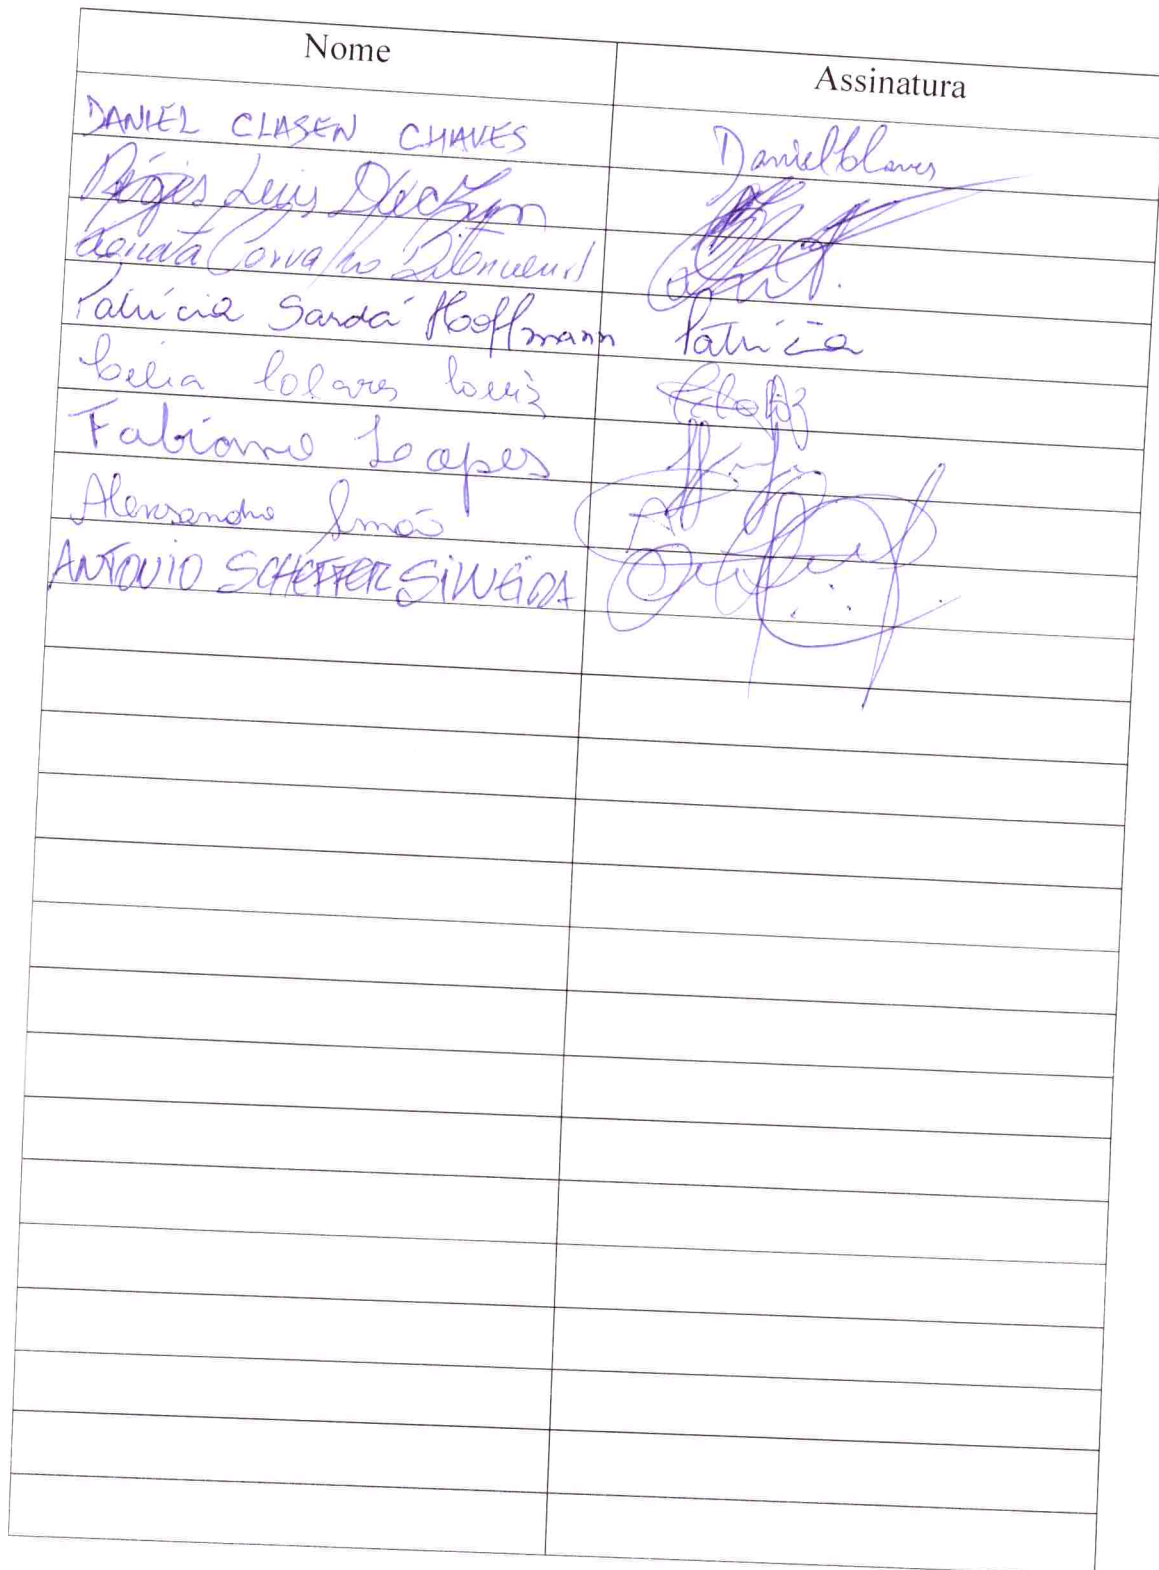 Nome Assinatura
DANIEL CLASEN CHAVES Daniel Chaves
Régis Luis
Renata Carvalho Bitencourt
Patrícia Sardá Hoffmann Patrícia
Célia Colares
Fabiano Lopes
Alexsandro Simão
ANTONIO SCHEFFER SILVEIRA